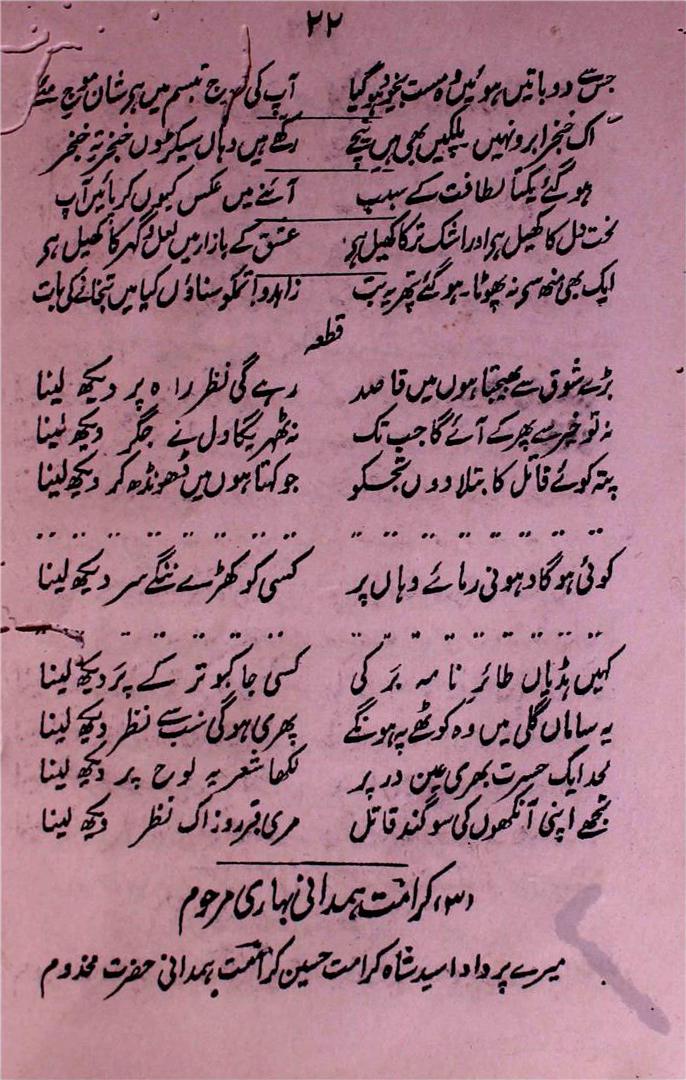 ۲۲
جس سے دو باتیں ہوئیں وہ مست بیخود ہو گیا آپ کی طرح تبسم میں ہر شان موج مئے
اک خنجر ابرو نہیں پلکیں بھی ہیں نیچے رکھے ہیں وہاں سیکڑوں خنجر تہ خنجر
ہو گئے یکتا لطافت کے سبب آئنے میں عکس کیوں کر پائیں آپ
لخت دل کا کھیل ہر اور اشک تر کا کھیل ہر عشق کے بازار میں لعل و گہر کا کھیل ہر
ایک بھی منھ سی نہ پھوٹا۔ ہو گئے پتھر یہ بت زاہدو! تمکو سناؤں کیا میں بتخانے کی بات
قطعہ
بڑے شوق سے بھیجتا ہوں میں قاصد رہے گی نظر راہ پر دیکھ لینا
نہ تو خیر سے پھر کے آئے گا جب تک نہ ٹھہریگا دل نے جگر دیکھ لینا
پتہ کوئے قاتل کا بتلا دوں تجھکو جو کہتا ہوں میں ڈھونڈھ کر دیکھ لینا
.. .. .. .. .. .. .. .. .. .. .. ..
کوئی ہوگا دھونی رمائے وہاں پر کسی کو کھڑے ننگے سر دیکھ لینا
.. .. .. .. .. .. .. .. .. .. .. ..
کہیں ہڈیاں طائر نامہ بر کی کسی جا کبوتر کے پَر دیکھ لینا
یہ ساماں گلی میں وہ کوٹھے پہ ہونگے پھری ہوگی سب سے نظر دیکھ لینا
لحد ایک حسرت بھری عین در پر لکھا شعر یہ لوح پر دیکھ لینا
تجھے اپنی آنکھوں کی سوگند قاتل مری قبر روز اک نظر دیکھ لینا
(۳) کرامت ہمدانی بہاری مرحوم
میرے پردادا سید شاہ کرامت حسین کرامت ہمدانی حضرت مخدوم